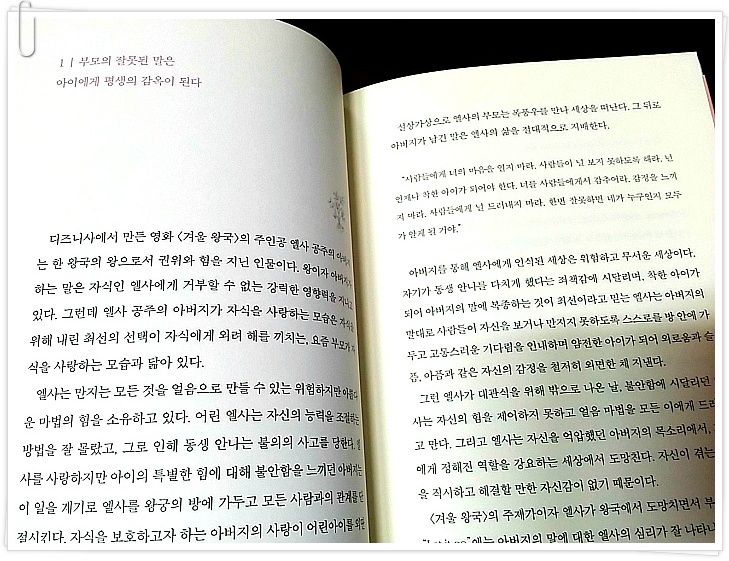 1 | 부모의 잘못된 말은
아이에게 평생의 감옥이 된다
디즈니사에서 만든 영화 〈겨울 왕국〉의 주인공 엘사 공주의 아버지
는 한 왕국의 왕으로서 권위와 힘을 지닌 인물이다. 왕이자 아버지가
하는 말은 자식인 엘사에게 거부할 수 없는 강력한 영향력을 지니고
있다. 그런데 엘사 공주의 아버지가 자식을 사랑하는 모습은 자식을
위해 내린 최선의 선택이 자식에게 외려 해를 끼치는, 요즘 부모가 자
식을 사랑하는 모습과 닮아 있다.
엘사는 만지는 모든 것을 얼음으로 만들 수 있는 위험하지만 아름다
운 마법의 힘을 소유하고 있다. 어린 엘사는 자신의 능력을 조절하는
방법을 잘 몰랐고, 그로 인해 동생 안나는 불의의 사고를 당한다. 엘
사를 사랑하지만 아이의 특별한 힘에 대해 불안함을 느끼던 아버지는
이 일을 계기로 엘사를 왕궁의 방에 가두고 모든 사람과의 관계를 단
절시킨다. 자식을 보호하고자 하는 아버지의 사랑이 어린아이를 외딴
설상가상으로 엘사의 부모는 폭풍우를 만나 세상을 떠난다. 그 뒤로
아버지가 남긴 말은 엘사의 삶을 절대적으로 지배한다.
“사람들에게 너의 마음을 열지 마라. 사람들이 널 보지 못하도록 해라. 넌
언제나 착한 아이가 되어야 한다. 너를 사람들에게서 감추어라. 감정을 느끼
지 마라. 사람들에게 널 드러내지 마라. 한번 잘못하면 네가 누구인지 모두
가 알게 된 거야.”
아버지를 통해 엘사에게 인식된 세상은 위험하고 무서운 세상이다.
자기가 동생 안나를 다치게 했다는 죄책감에 시달리며, 착한 아이가
되어 아버지의 말에 복종하는 것이 최선이라고 믿는 엘사는 아버지의
말대로 사람들이 자신을 보거나 만지지 못하도록 스스로를 방 안에 가
두고 고통스러운 기다림을 인내하며 얌전한 아이가 되어 외로움과 슬
픔, 아픔과 같은 자신의 감정을 철저히 외면한 채 지낸다.
그런 엘사가 대관식을 위해 밖으로 나온 날, 불안함에 시달리던
사는 자신의 힘을 제어하지 못하고 얼음 마법을 모든 이에게 드러
고 만다. 그리고 엘사는 자신을 억압했던 아버지의 목소리에서,
에게 정해진 역할을 강요하는 세상에서 도망친다. 자신이 겪는
을 직시하고 해결할 만한 자신감이 없기 때문이다.
〈겨울 왕국〉의 주제가이자 엘사가 왕국에서 도망치면서 부
에는 아버지의 말에 대한 엘사의 심리가 잘 나타나